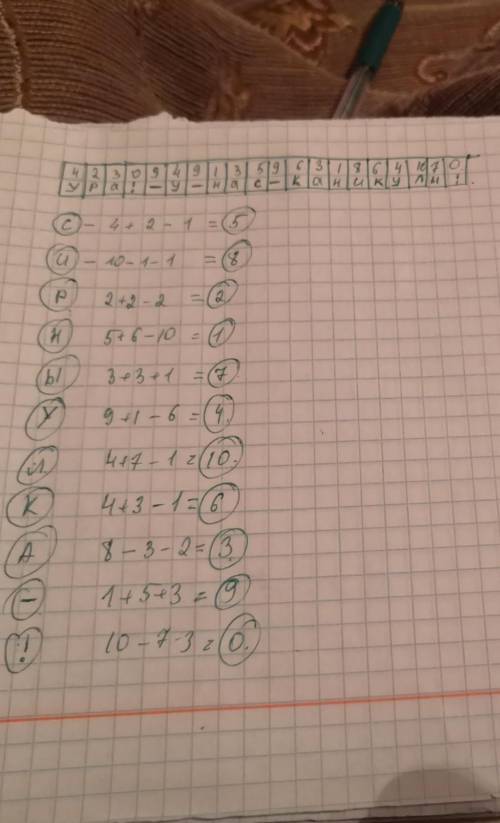 4 2 3 0 9 4 9 1 3 5 9 6 3 1 8 6 4 10 7 0
У Р А ! - У - Н А С - К А Н И К У Л Ы !
С - 4 + 2 - 1 = 5
И - 10 - 1 - 1 = 8
Р 2 + 2 - 2 = 2
Н 5 + 6 - 10 = 1
Ы 3 + 3 + 1 = 7
У 9 + 1 - 6 = 4.
Л 4 + 7 - 1 = 10.
К 4 + 3 - 1 = 6
А 8 - 3 - 2 = 3.
- 1 + 5 + 3 = 9
! 10 - 7 - 3 = 0.